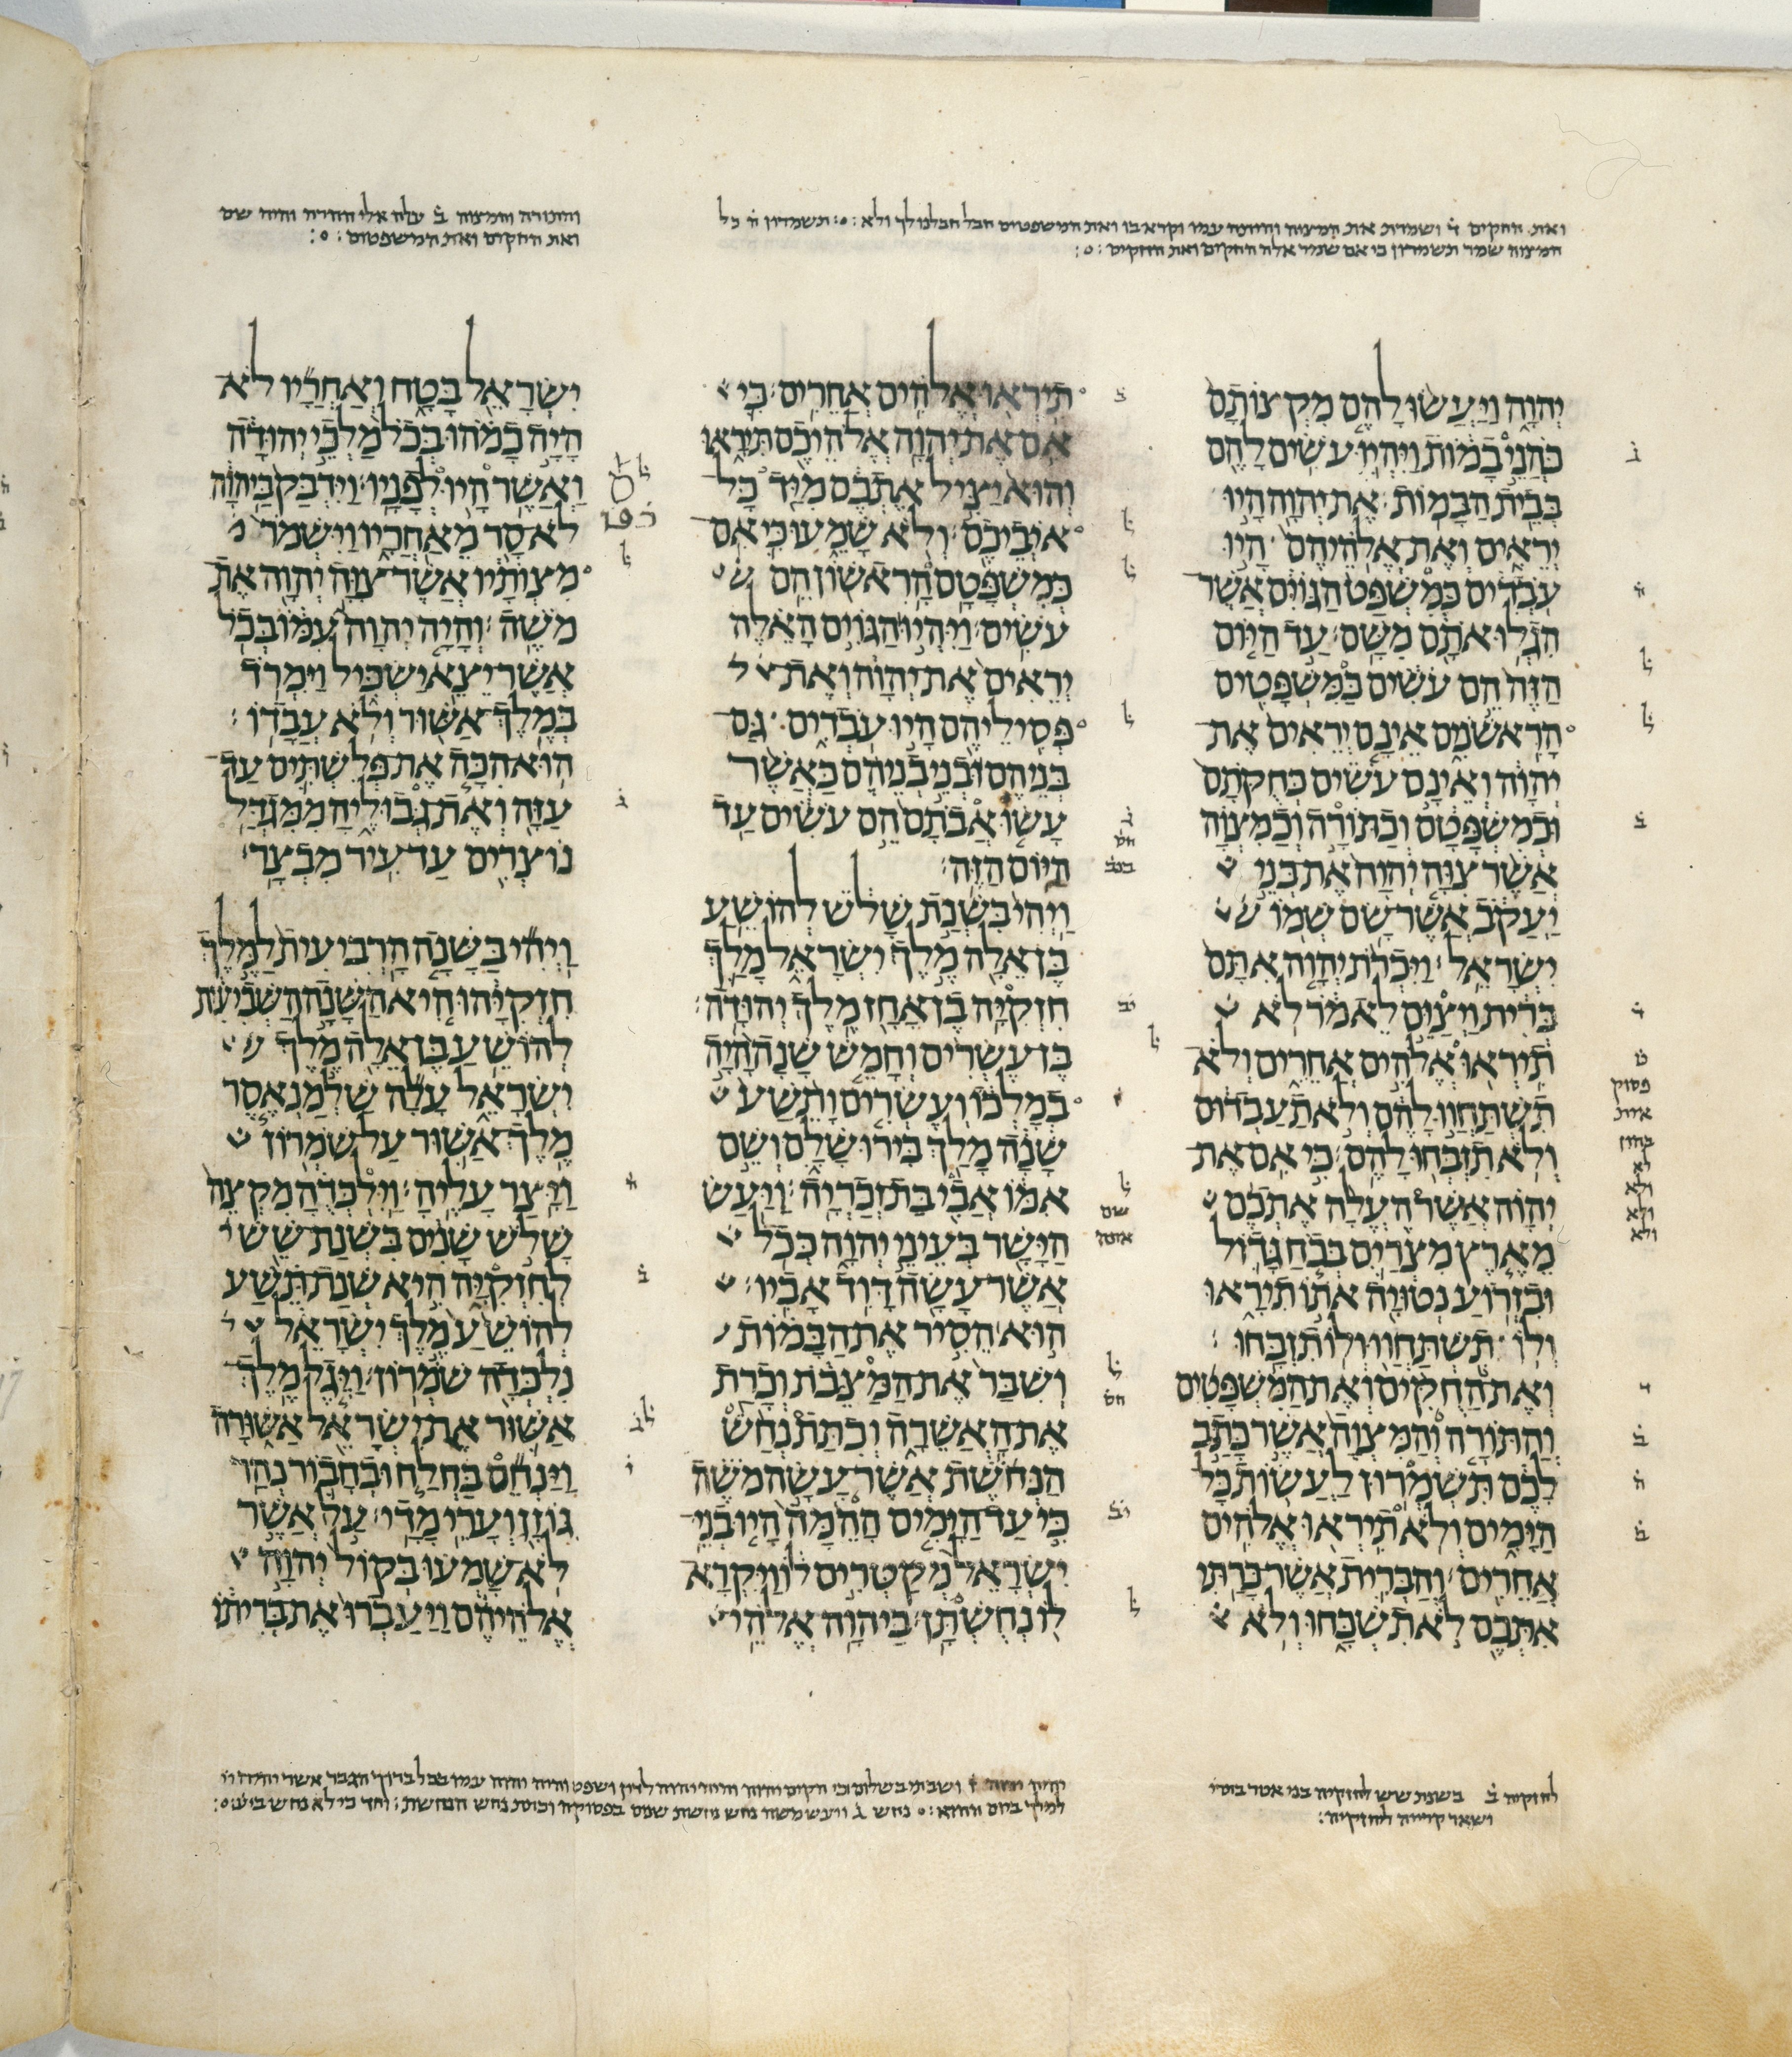 ואת החקים ד ושמרת את המצוה
המצוה שמר תשמרון כי אם שמר אלה החקים ואת החקים
והתורה והמצוה ב עלה אלי ההרה והיה שם
ואת החקים ואת המשפטים
יהוה ויעשו להם מקצותם
כהני במות ויהיו עשים להם
בבית הבמות את יהוה היו
יראים ואת אלהיהם היו
עבדים כמשפט הגוים אשר
הגלו אתם משם עד היום
הזה הם עשים כמשפטים
הראשנים אינם יראים את
יהוה ואינם עשים כחקתם
וכמשפטם וכתורה וכמצוה
אשר צוה יהוה את בני
יעקב אשר שם שמו
ישראל ויכרת יהוה אתם
ברית ויצום לאמר לא
תיראו אלהים אחרים ולא
תשתחוו להם ולא תעבדום
ולא תזבחו להם כי אם את
יהוה אשר העלה אתכם
מארץ מצרים בכח גדול
ובזרוע נטויה אתו תיראו
ולו תשתחוו ולו תזבחו
ואת החקים ואת המשפטים
והתורה והמצוה אשר כתב
לכם תשמרון לעשות כל
הימים ולא תיראו אלהים
אחרים והברית אשר כרתי
אתכם לא תשכחו ולא
תיראו אלהים אחרים כי
אם את יהוה אלהיכם תיראו
והוא יציל אתכם מיד כל
איביכם ולא שמעו כי אם
כמשפטם הראשון הם
עשים ויהיו הגוים האלה
יראים את יהוה ואת
פסיליהם היו עבדים גם
בניהם ובני בניהם כאשר
עשו אבתם הם עשים עד
היום הזה
ויהי בשנת שלש להושע
בן אלה מלך ישראל מלך
חזקיה בן אחז מלך יהודה
בן עשרים וחמש שנה היה
במלכו ועשרים ותשע
שנה מלך בירושלם ושם
אמו אבי בת זכריה ויעש
הישר בעיני יהוה ככל
אשר עשה דוד אביו
הוא הסיר את הבמות
ושבר את המצבת וכרת
את האשרה וכתת נחש
הנחשת אשר עשה משה
כי עד הימים ההמה היו בני
ישראל מקטרים לו ויקרא
לו נחשתן ביהוה אלהי
ישראל בטח ואחריו לא
היה כמהו בכל מלכי יהודה
ואשר היו לפניו וידבק ביהוה
לא סר מאחריו וישמר
מצותיו אשר צוה יהוה את
משה והיה יהוה עמו בכל
אשר יצא ישכיל וימרד
במלך אשור ולא עבדו
הוא הכה את פלשתים עד
עזה ואת גבוליה ממגדל
נוצרים עד עיר מבצר
ויהי בשנה הרביעית למלך
חזקיהו היא השנה השביעית
להושע בן אלה מלך
ישראל עלה שלמנאסר
מלך אשור על שמרון
ויצר עליה וילכדה מקצה
שלש שנים בשנת שש
לחזקיה היא שנת תשע
להושע מלך ישראל
נלכדה שמרון ויגל מלך
אשור את ישראל אשורה
וינחם בחלח ובחבור נהר
גוזן וערי מדי על אשר
לא שמעו בקול יהוה
אלהיהם ויעברו את בריתו
לחזקיה ב בשנת שש לחזקיה בני אטר
ושאר קרייה לחזקיה
נחש ויעש משה נחש נחשת